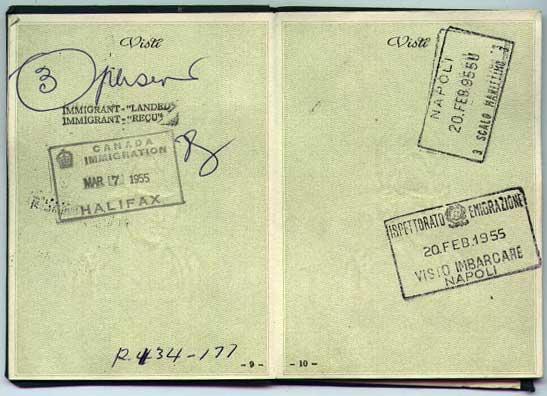 Visti
3 persons
IMMIGRANT-"LANDED"
IMMIGRANT-"REÇU"
CANADA
IMMIGRATION
MAR 7 1955
HALIFAX
R.434-177
- 9 -
Visti
NAPOLI
20.FEB.955U
3 SCALO MARITTIMO 3
ISPETTORATO EMIGRAZIONE
20.FEB.1955
VISTO IMBARCARE
NAPOLI
- 10 -